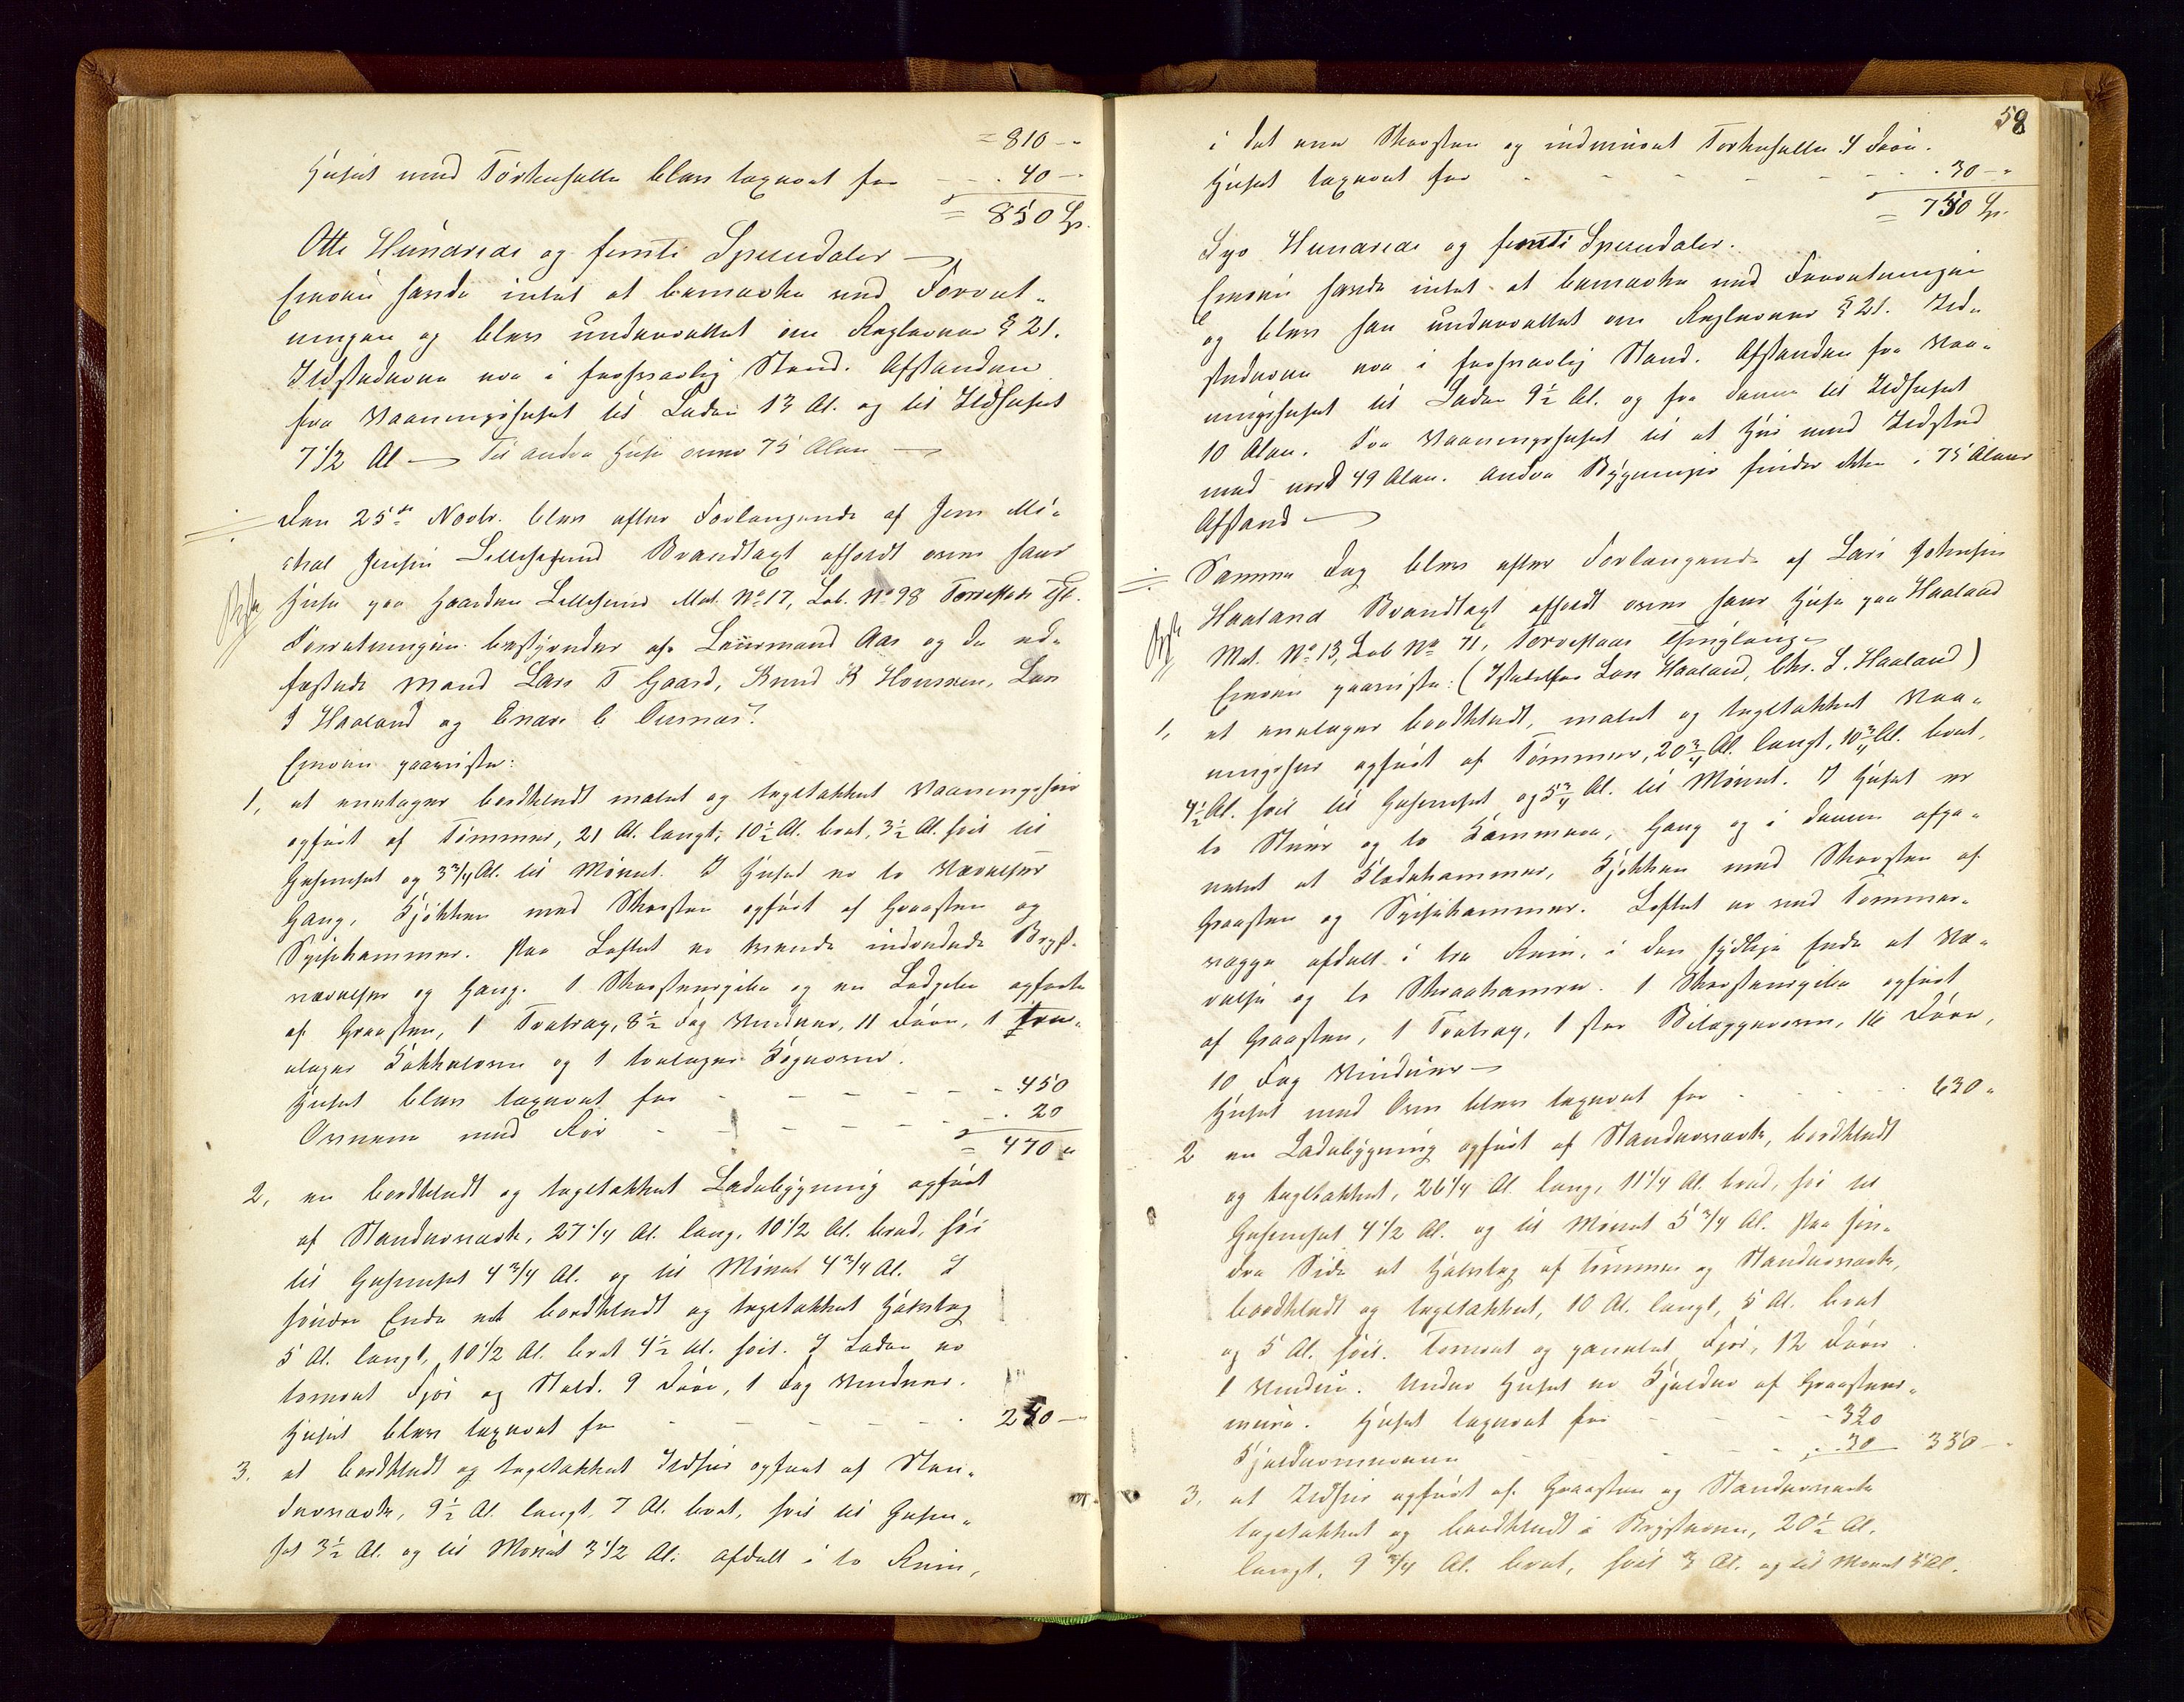 = 810 - -
Huset med Tørkehelle blev taxeret for - - . 40 -
= 850 Sp.
Otte Hundrede og femti Speciedaler —
Eieren havde intet at bemærke ved Forret-
ningen og blev underrettet om Reglerne § 21.
Ildstederne var i forsvarlig Stand. Afstanden
fra Vaaningshuset til Laden 13 Al. og til Ildhuset
7 1/2 Al — Til andre Huse over 75 Alen —
Den 25de Novbr. blev efter Forlangende af Jens Mi-
chal Jensen Lillesund Brandtaxt afholdt over hans
Huse paa Gaarden Lillesund Mat. No 17, Lb. No 98 Torvestads Thl.
Forretningen bestyredes af Lensmand Aas og de ed-
fæstede Mænd Lars T Gaard, Knud K Housken, Lars
J Haaland og Enare C Tusnæs.
Eieren paaviste:
1, et enetages bordklædt malet og tegltækket Vaaningshus
opført af Tømmer, 21 Al. langt, 10 1/2 Al. bret, 3 1/2 Al. høit til
Gesimset og 3 3/4 Al. til Mønet. I Huset er to Værelser
Gang, Kjøkken med Skorsten opført af Graasten og
Spisekammer. Paa Loftet er tvende indredede Bryst-
værelser og Gang. 1 Skorstenspibe og en Ladpibe opførte
af Graasten, 1 Tretrap, 8 1/2 Fag Vinduer, 11 Døre, 1 tre-
etages Kakkelovn og 1 toetages Kogeovn.
Huset blev taxeret for - - - - - 450
Ovnene med Rør - - - - - - . 20
= 470 "
2, en bordklædt og tegltækket Ladebygning opført
af Standerværk, 27 1/4 Al. lang, 10 1/2 Al. bred, høi
til Gesimset 4 3/4 Al. og til Mønet 4 3/4 Al. I
søndre Ende et bordklædt og tegltækket Halvtag
5 Al. langt, 10 1/2 Al. bret 4 1/2 Al. høit. I Laden er
tømret Fjøs og Stald. 9 Døre, 1 Fag Vinduer.
Huset blev taxeret for - - - - - . 250 —
3. et bordklædt og tegltækket Ildhus opført af Stan-
derværk, 9 1/2 Al. langt, 7 Al. bret, høit til Gesim-
set 3 1/2 Al. og til Mønet 3 1/2 Al. afdelt i to Rum,
58
i det ene Skorsten og indmuret Tørkehelle 4 Døre.
Huset taxeret for - - - - - - . 30 - "
= 750 Sp.
Syv Hundrede og femti Speciedaler.
Eieren havde intet at bemærke ved Forretningen
og blev han underrettet om Reglerne § 21. Ild-
stederne var i forsvarlig Stand. Afstanden fra Vaa-
ningshuset til Laden 9 1/2 Al. og fra denne til Ildhuset
10 Alen. Fra Vaaningshuset til et Hus med Ildsted
mod nord 49 Alen. Andre Bygninger findes ikke i 75 Alens
Afstand —
Samme Dag blev efter Forlangende af Lars Johnsen
Haaland Brandtaxt afholdt over hans Huse paa Haaland
Mat. No 13, Lb No 71, Torvestads Thinglaug
Eieren paaviste: (Istedetfor Lars Haaland, Chr. L. Haaland)
1, et enetages bordklædt, malet og tegltækket Vaa-
ningshus opført af Tømmer, 20 3/4 Al. langt, 10 3/4 Al. bret,
4 1/2 Al. høit til Gesimset og 5 3/4 Al. til Mønet. I Huset er
to Stuer og to Kammere, Gang og i denne afpa-
nelet et Klædekammer, Kjøkken med Skorsten af
Graasten og Spisekammer. Loftet er med Tømmer-
vægge afdelt i tre Rum, i den sydlige Ende et Væ-
relse og to Skraakamre. 1 Skorstenspibe opført
af Graasten, 1 Tretrap, 1 stor Bilæggerovn, 16 Døre,
10 Fag Vinduer —
Huset med Ovn blev taxeret for - - - 630 "
2 en Ladebygning opført af Standerværk, bordklædt
og tegltækket, 26 1/4 Al. lang, 11 1/4 Al. bred, høi til
Gesimset 4 1/2 Al. og til Mønet 5 3/4 Al. Paa søn-
dre Side et Halvtag af Tømmer og Standerværk,
bordklædt og tegltækket, 10 Al. langt, 5 Al. bret
og 5 Al. høit. Tømret og panelet Fjøs, 12 Døre
1 Vindu. Under Huset er Kjelder af Graastens-
mure. Huset taxeret for - - - 320
Kjeldermurene - - - . 30 — 350 - "
3. et Ildhus opført af Graasten og Standerværk
tegltækket og bordklædt i Brystene, 20 1/2 Al.
langt, 9 3/4 Al. bret, høit 3 Al. og til Mønet 5 Al.